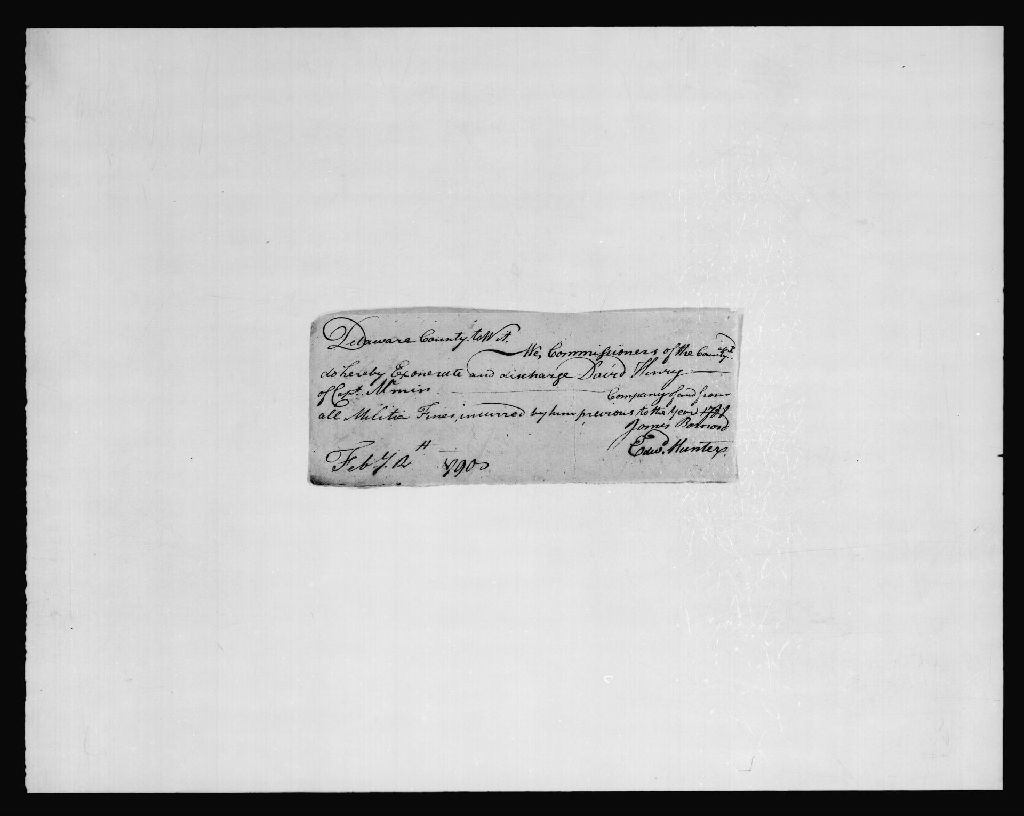 Delaware County to Wit.
We, Commissioners of the County
do hereby Exonerate and discharge David Henry
of Capt. Company of and from
all Militia Fines, incurred by him previous to the Year
James Barnard
Edwd. Hunter.
Feby. 12th 1790